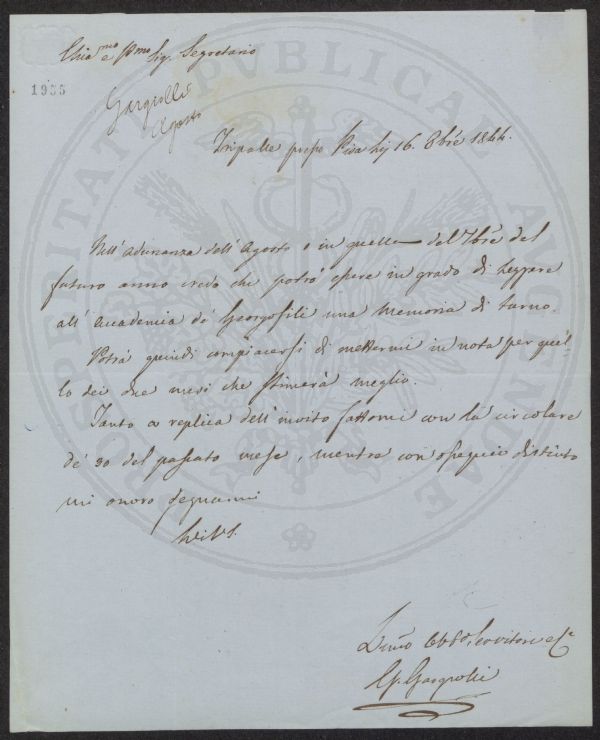 Chia^mo e P^mo Sig. Segretario
1955
Gargiolli
Agosto
Tripalle presso Pisa li 16. 8bre 1844.
Nell'adunanza dell'Agosto o in quella del 7bre del
futuro anno credo che potrò essere in grado di leggere
all'Accademia dè Georgofili una Memoria di turno.
Potrà quindi compiacersi di mettermi in nota per quel-
lo dei due mesi che stimerà meglio.
Tanto a replica dell'invito fattomi con la circolare
de' 30 del passato mese, mentre con ossequio distinto
mi onoro segnarmi
Obb^o Servitore
G. Gargiolli
PROSPERITATI PUBLICAE AUGENDAE